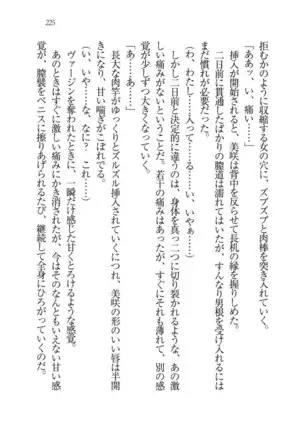 225
拒むかのように収縮する女の穴に、ズブズブと肉棒を突き入れていく。
「あっ……いっ、痛い……」
挿入が開始されると、美咲は背中を反らせて長机の縁を握りしめた。
二日前に貫通したばかりの膣道は濡れてはいたが、すんなり男根を受け入れるにはまだ慣れが必要だった。
「わ、わたし……入って……いやぁ……」
しかし二日前と決定的に違うのは、身体を真っ二つに切り裂かれるような、あの激しい痛みがないことだった。若干の痛みはあったが、すぐにそれも薄れて、別の感覚が少しずつ大きくなっていく。
「あ……あっ……」
長大な肉竿がゆっくりとズルズル挿入されていくにつれ、美咲の形のいい唇は半開きになり、甘い喘ぎがこぼれでた。
（い、いや……な、なに？ これ……）
ヴァージンを奪われたときに、一瞬だけ感じた甘くとろけるような感覚。
あのときはすぐに激しい痛みにかき消されたが、今はそのなんとも甘い感覚が、膣襞をペニスに擦りあげられるたび、継続して全身にひろがっていくのだ。